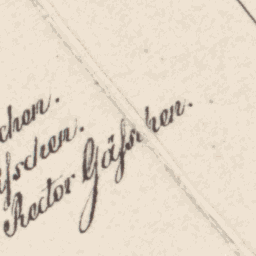 chen.
ſschen.
Rector Gäſschen.